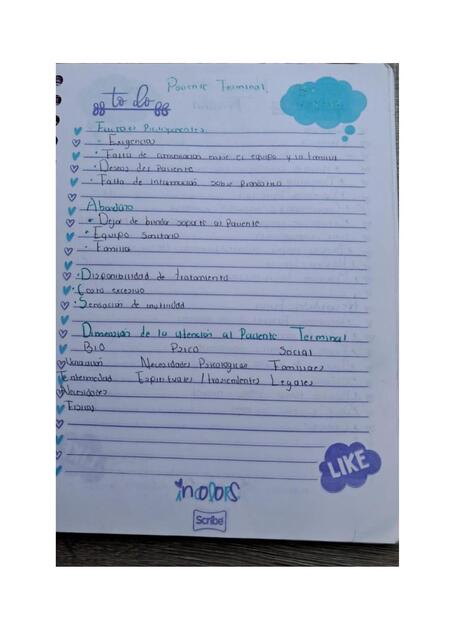 Paciente Terminal
to do
Factores Predisponentes
• Exigencias
• Falta de comunicación entre el equipo y la familia
• Deseos del Paciente
• Falta de información sobre pronóstico
Abandono
• Dejar de brindar soporte al Paciente
• Equipo Sanitario
• Familia
• Disponibilidad de tratamiento
• Costo excesivo
• Sensación de inutilidad
Dimensión de la atención al Paciente Terminal
Bio Psico Social
Valoración Necesidades Psicológicas Familiares
Enfermedad Espirituales / trascendentes Legales
Necesidades
Físicas
LIKE
incolors
Scribe